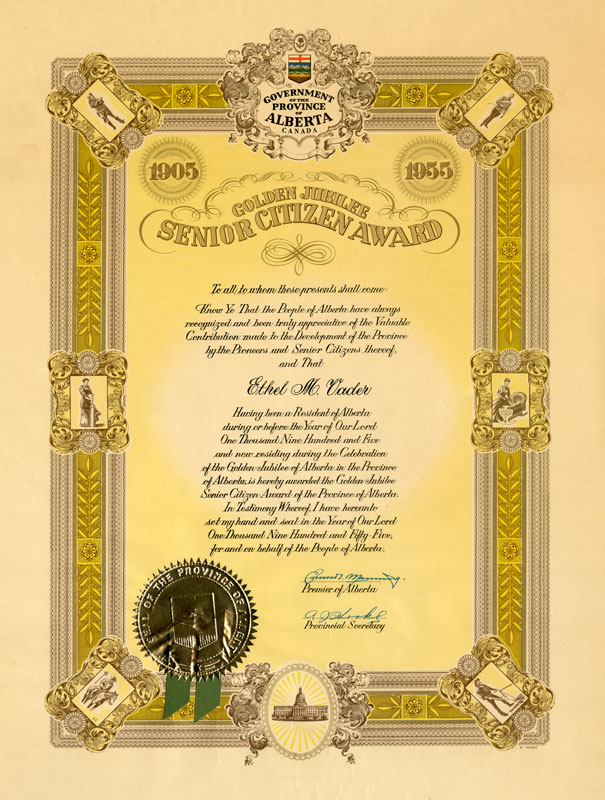 GOVERNMENT
OF THE
PROVINCE
OF
ALBERTA
CANADA
1905 1955
GOLDEN JUBILEE
SENIOR CITIZEN AWARD
To all to whom these presents shall come:
Know Ye That the People of Alberta have always
recognized and been truly appreciative of the Valuable
Contribution made to the Development of the Province
by the Pioneers and Senior Citizens thereof,
and That
Ethel M. Vader
Having been a Resident of Alberta
during or before the Year of Our Lord
One Thousand Nine Hundred and Five
and now residing during the Celebration
of the Golden Jubilee of Alberta in the Province
of Alberta, is hereby awarded the Golden Jubilee
Senior Citizen Award of the Province of Alberta.
In Testimony Whereof, I have hereunto
set my hand and seal in the Year of Our Lord
One Thousand Nine Hundred and Fifty Five,
for and on behalf of the People of Alberta.
Ernest C. Manning
Premier of Alberta
A J Hooke
Provincial Secretary
SEAL OF THE PROVINCE OF ALBERTA